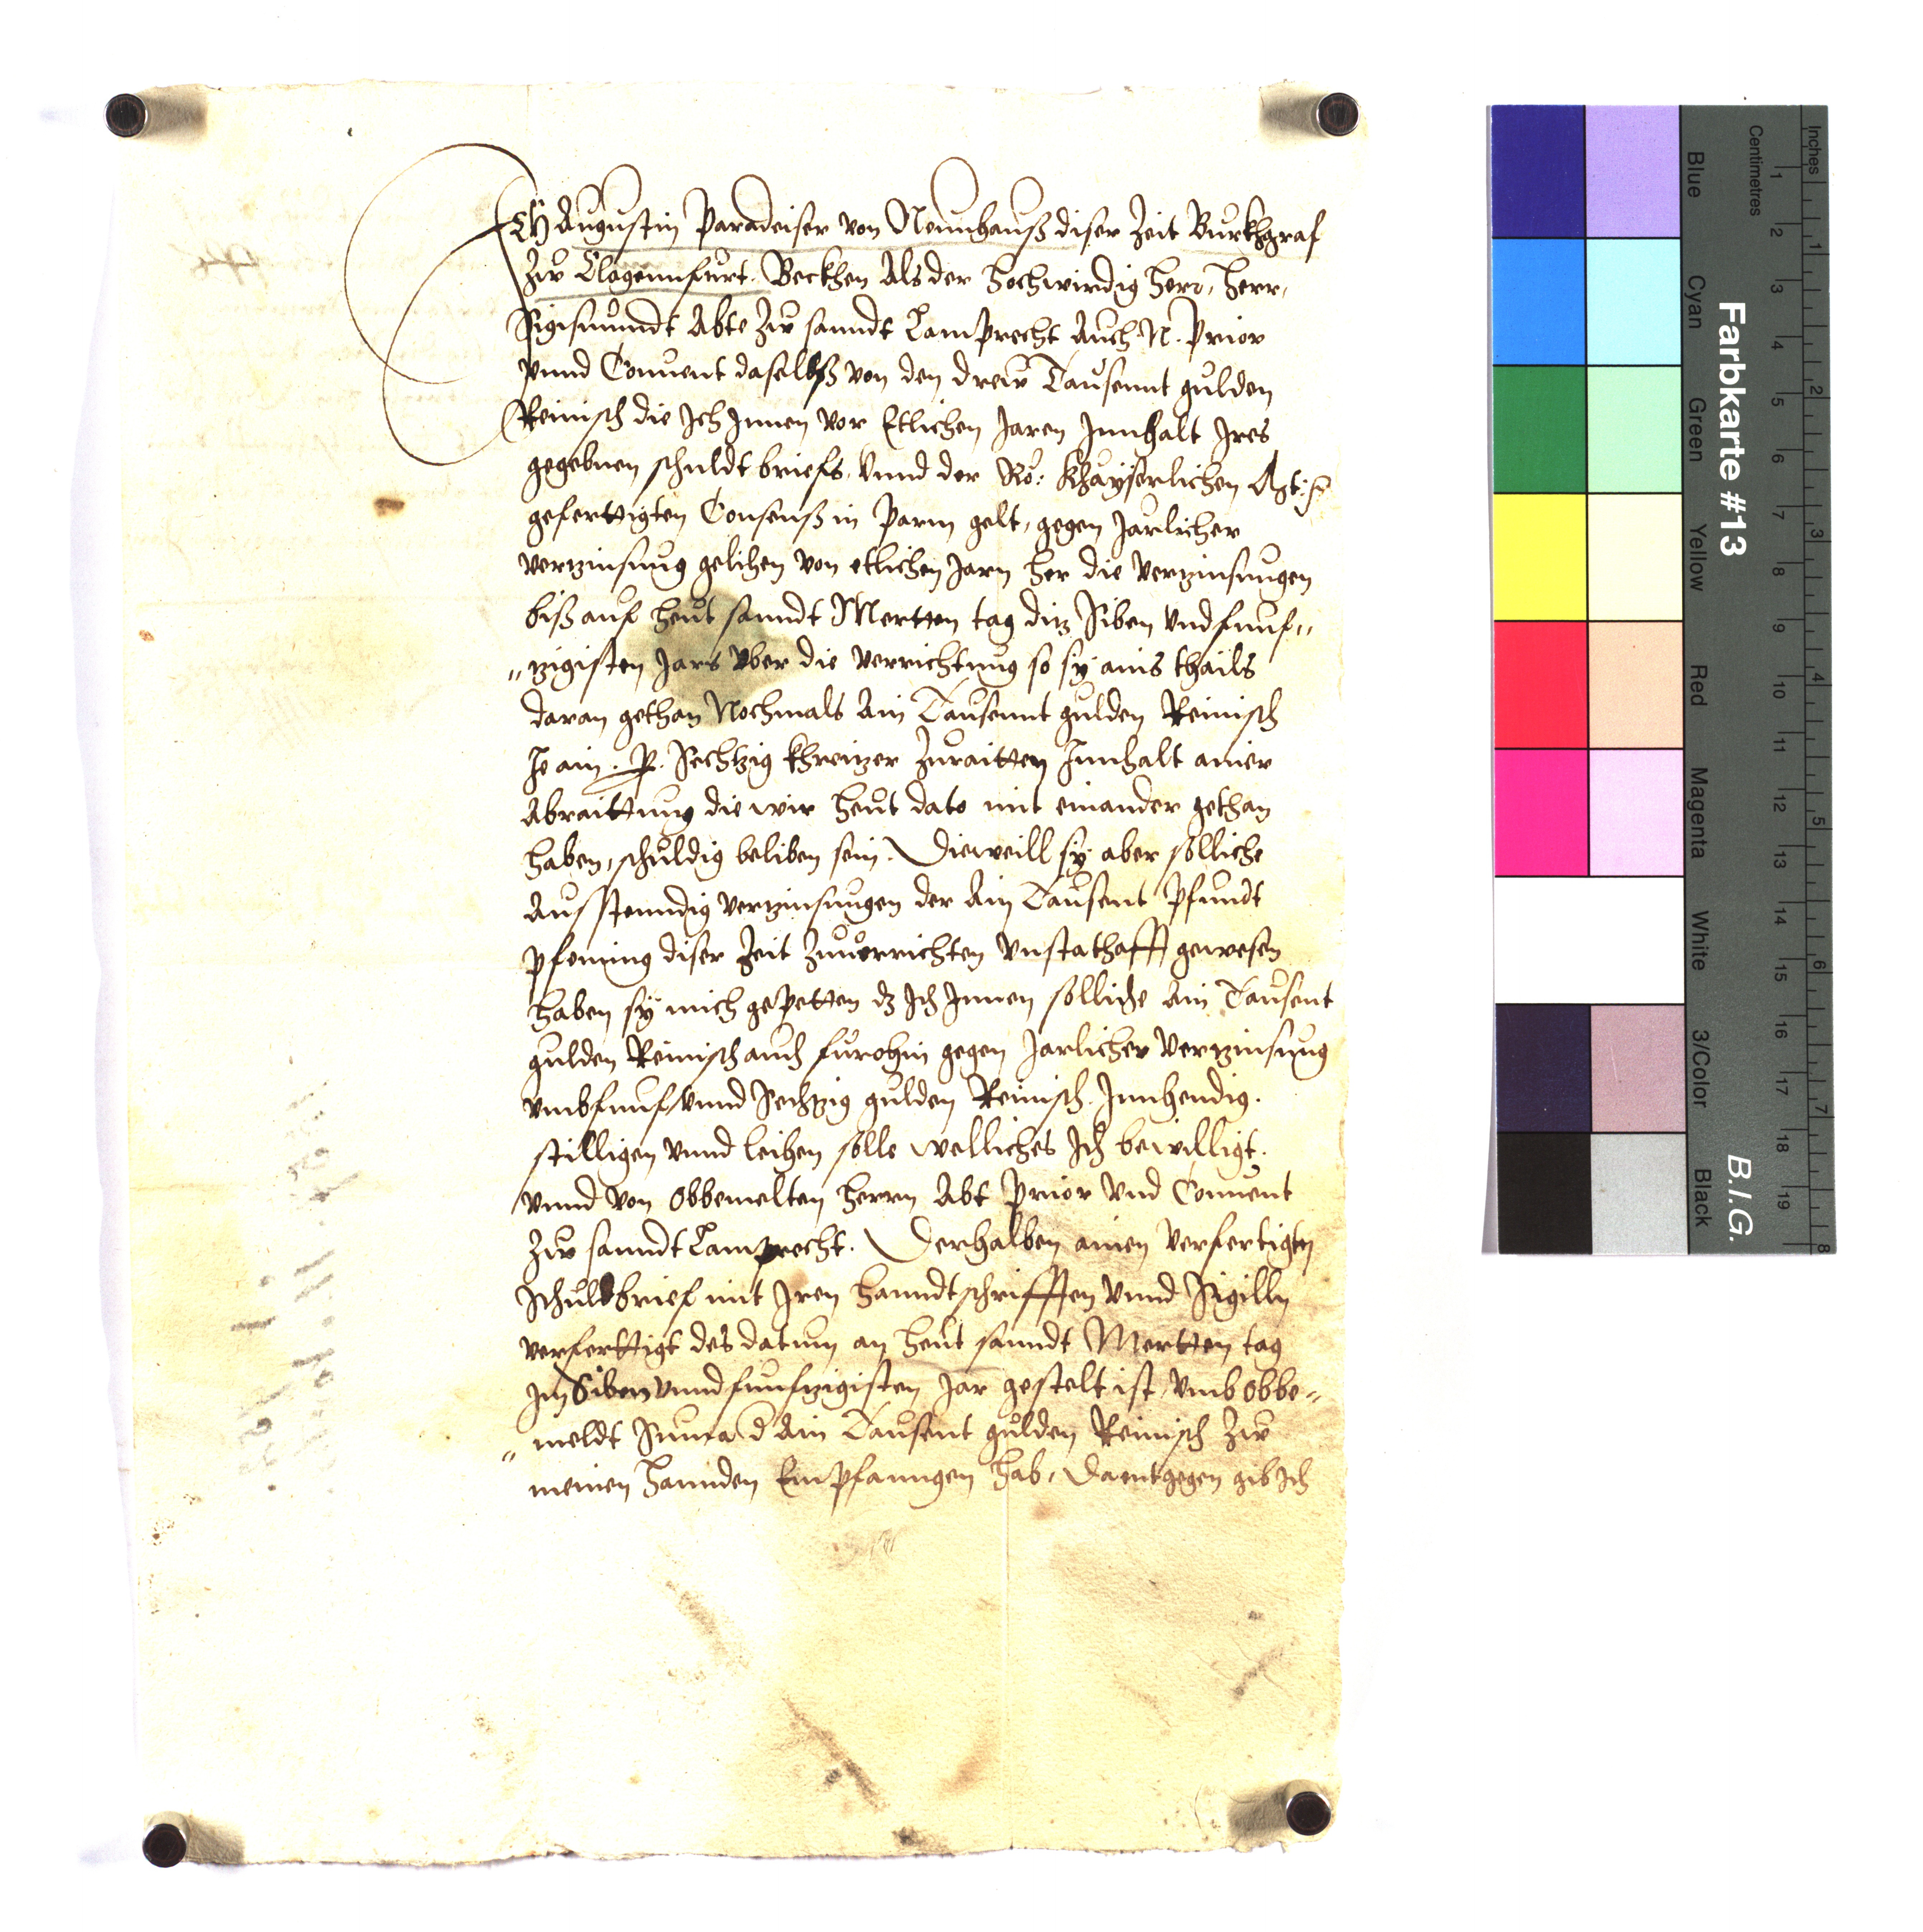 Ich Augustin Paradeiser von Neunhauß diser Zeit Burkhgraf
Zw Clagennfurt. Beckhen Als der Hochwirdig Herr, Herr,
Sigismundt Abte Zw sanndt Lamprecht Auch N. Prior
vnnd Conuent daselbß von den drew Tausennt gulden
Reinisch die Ich Innen vor Etlichen Jaren Innhalt Ires
gegebnen schuldt briefs, vnnd der Rö: Khayserlichen
geferttigten Consenß in Parm gelt, gegen Jarlicher
vertzinsung gelihen von etlichen Jarn her die vertzinsungen
biß auf heut sanndt Mertten tag ditz Siben vnd funf„
„tzigisten Jars vber die verrichtung so sy ains thails
daran gethan Nochmals Ain Tausennt gulden Reinisch
Je ain . ß. Sechtzig khreitzer Zuraitten Innhalt ainer
Abraittung die wir heut dato mit einander gethan
haben, schuldig beliben sein. Dieweill sy aber solliche
Ausstenndig vertzinsungen der Ain Tausent Pfundt
pfening diser Zeit Zuuerrichten vnstathafft gewesen
haben sy mich gepetten dz Ich Innen solliche Ain Tausent
gulden Reinisch auch furohin gegen Jarlicher vertzinsung
vmb funf vnnd Sechtzig gulden Reinisch. Innhendig.
stilligen vnnd leihen solle welliches Ich bewilligt.
vnnd von obbemelten herrn Abt Prior vnd Conuent
Zw sanndt Lamprecht. Derhalben ainen verfertigten
Schuldbrief mit Iren Hanndtschrifften vnnd Sigilln
verferttigt des datum an heut sanndt Mertten tag
Im Siben vnnd funftzigisten Jar gestelt ist, vmb obbe„
„meldt Suma d Ain Tausent gulden Reinisch Zw
meinen Hannden Empfanngen hab, Daentgegen gib Ich
Farbkarte #13
B.I.G.
Inches
Centimetres
1 2 3 4 5 6 7 8 9 10 11 12 13 14 15 16 17 18 19
1 2 3 4 5 6 7 8
Blue
Cyan
Green
Yellow
Red
Magenta
White
3/Color
Black